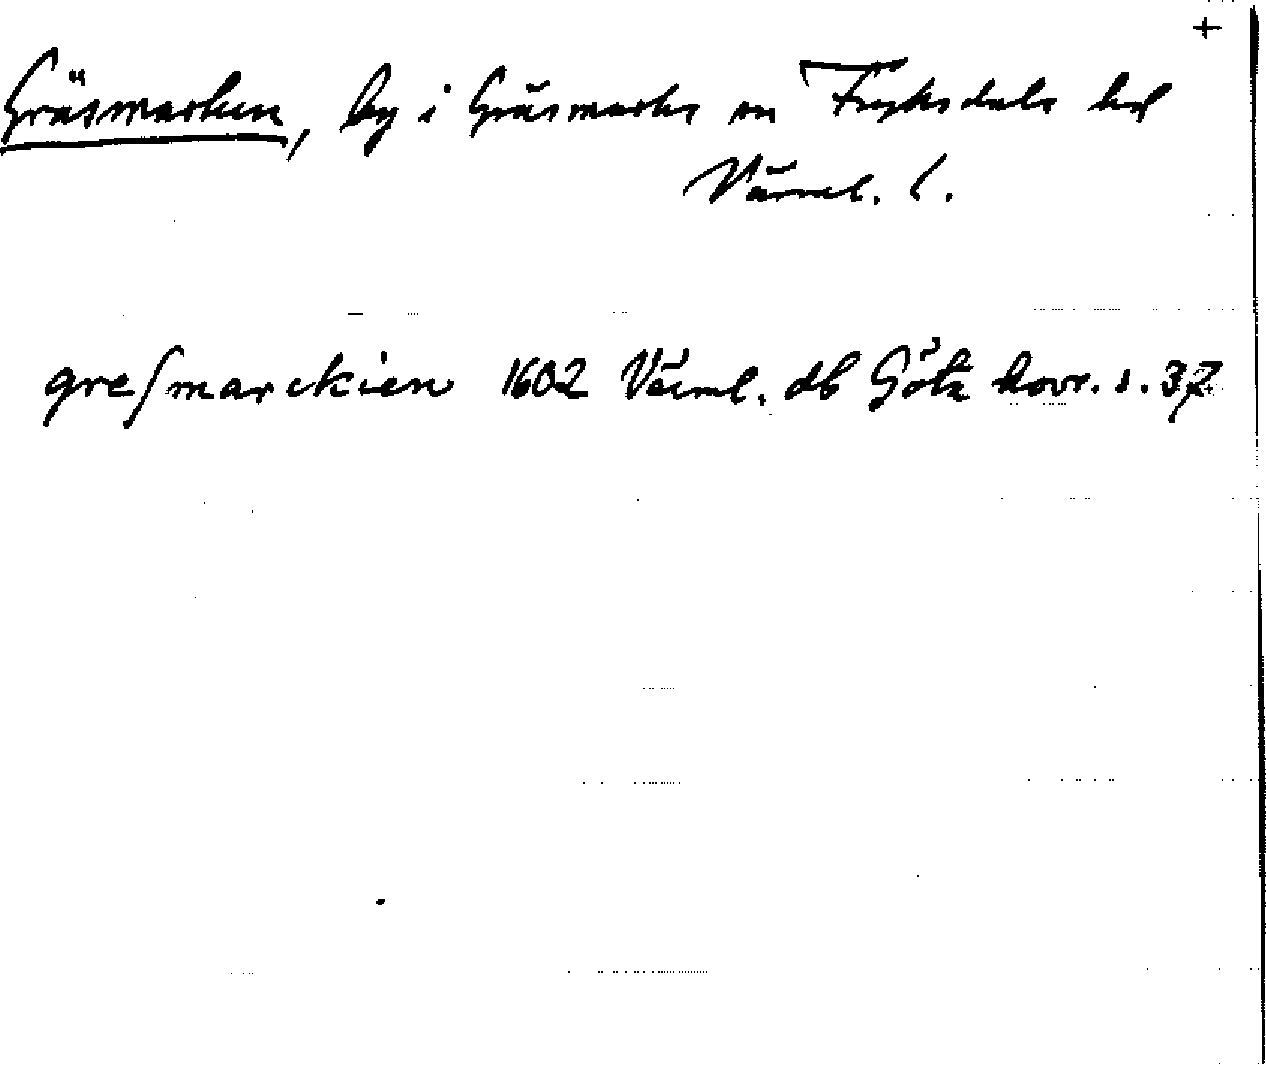 +
Gräsmarken, by i Gräsmarks sn Fryksdals hd
Värml. l.
greſmarckien 1602 Värml. db Göta hovr. s. 37